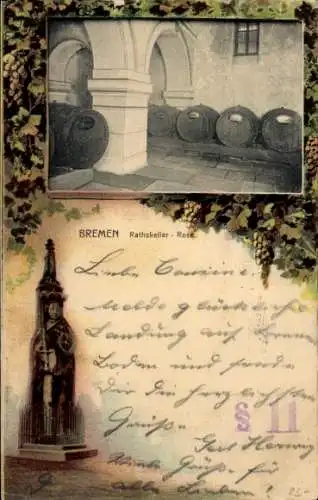 BREMEN Rathskeller - Rose.
Liebe Cousine
Melde glückliche
Landung auf
Boden und sende
Dir die herzlichsten
Grüße.
§ 11
Grüße für
alle Lieben!